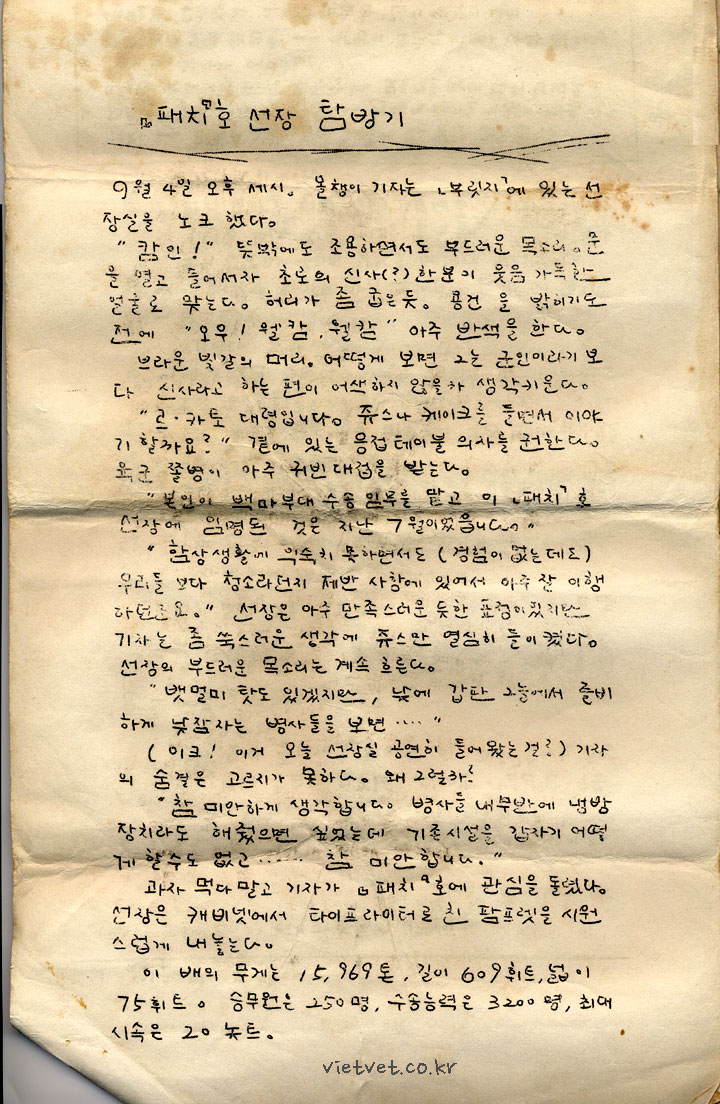 『패치』호 선장 탐방기
9월 4일 오후 세시. 올챙이 기자는 「부릿지」에 있는 선
장실을 노크 했다.
"캄인!" 뜻밖에도 조용하면서도 부드러운 목소리. 문
을 열고 들어서자 초로의 신사(?)한분이 웃음 가득한
얼굴로 맞는다. 허리가 좀 굽은듯. 용건을 밝히기도
전에 "오우! 웰캄, 웰캄" 아주 반색을 한다.
브라운 빛갈의 머리. 어떻게 보면 그는 군인이라기 보
다 신사라고 하는 편이 어색하지 않을가 생각키운다.
"르·카토 대령입니다. 쥬스나 케이크를 들면서 이야
기 할까요?" 곁에 있는 응접테이불 의자를 권한다.
육군 쫄병이 아주 귀빈대접을 받는다.
"본인이 백마부대 수송임무를 맡고 이 「패치」호
선장에 임명된 것은 지난 7월이었읍니다."
"함상생활에 익숙치 못하면서도 (경험이 없는데도)
우리들 보다 청소라던지 제반 사항에 있어서 아주 잘 이행
하던군요." 선장은 아주 만족스러운 듯한 표정이었지만
기자는 좀 쑥스러운 생각에 쥬스만 열심히 들이켰다.
선장의 부드러운 목소리는 계속 흐른다.
"뱃멀미 탓도 있겠지만, 낮에 갑판 그늘에서 즐비
하게 낮잠자는 병사들을 보면 ····"
(이크! 이거 오늘 선장실 공연히 들어왔는걸?) 기자
의 숨결은 고르지가 못하다. 왜 그럴까?
"참 미안하게 생각합니다. 병사들 내무반에 냉방
장치라도 해줬으면 싶었는데 기존시설을 갑자기 어떻
게 할수도 없고 ······ 참 미안합니다."
과자 먹다말고 기자가 『패치』호에 관심을 돌렸다.
선장은 캐비넷에서 타이프라이터로 친 팜프렛을 시원
스럽게 내놓는다.
이 배의 무게는 15,969톤, 길이 609휘트, 넓이
75휘트. 승무원은 250명, 수송능력은 3200명, 최대
시속은 20놋트.
vietvet.co.kr